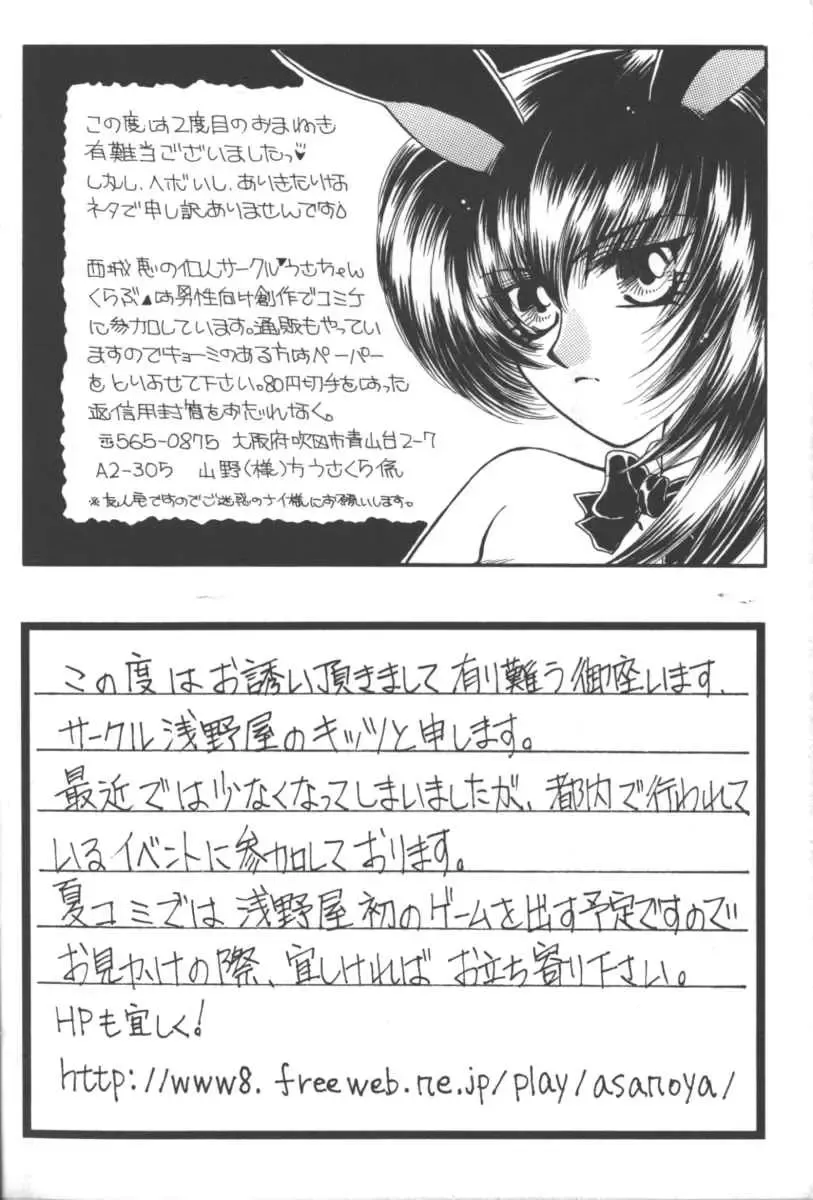 この度は2度目のおまねき
有難当ございましたっ♥
し、ヘボいし、ありきたりな
ネタで申し訳ありませんです
西城恵の個人サークル♥うさちゃん
くらぶ▲は男性向け創作でコミケ
に参加しています。通販もやってい
ますのでキョーミのある方はペーパー
をとりよせて下さい。80円切手をはった
返信用封筒をわすれなく。
〒565-0875 大阪府吹田市青山台2-7
A2-305 山野(様)方うさくら係
※友人宅ですのでご迷惑のナイ様にお願いします。
この度はお誘い頂きまして有り難う御座います、
サークル浅野屋のキッツと申します。
最近では少なくなってしまいましたが、都内で行われて
いるイベントに参加しております。
夏コミでは浅野屋初のゲームを出す予定ですので
お見かけの際、宜しければお立ち寄り下さい。
HPも宜しく!
http://www8.freeweb.ne.jp/play/asanoya/